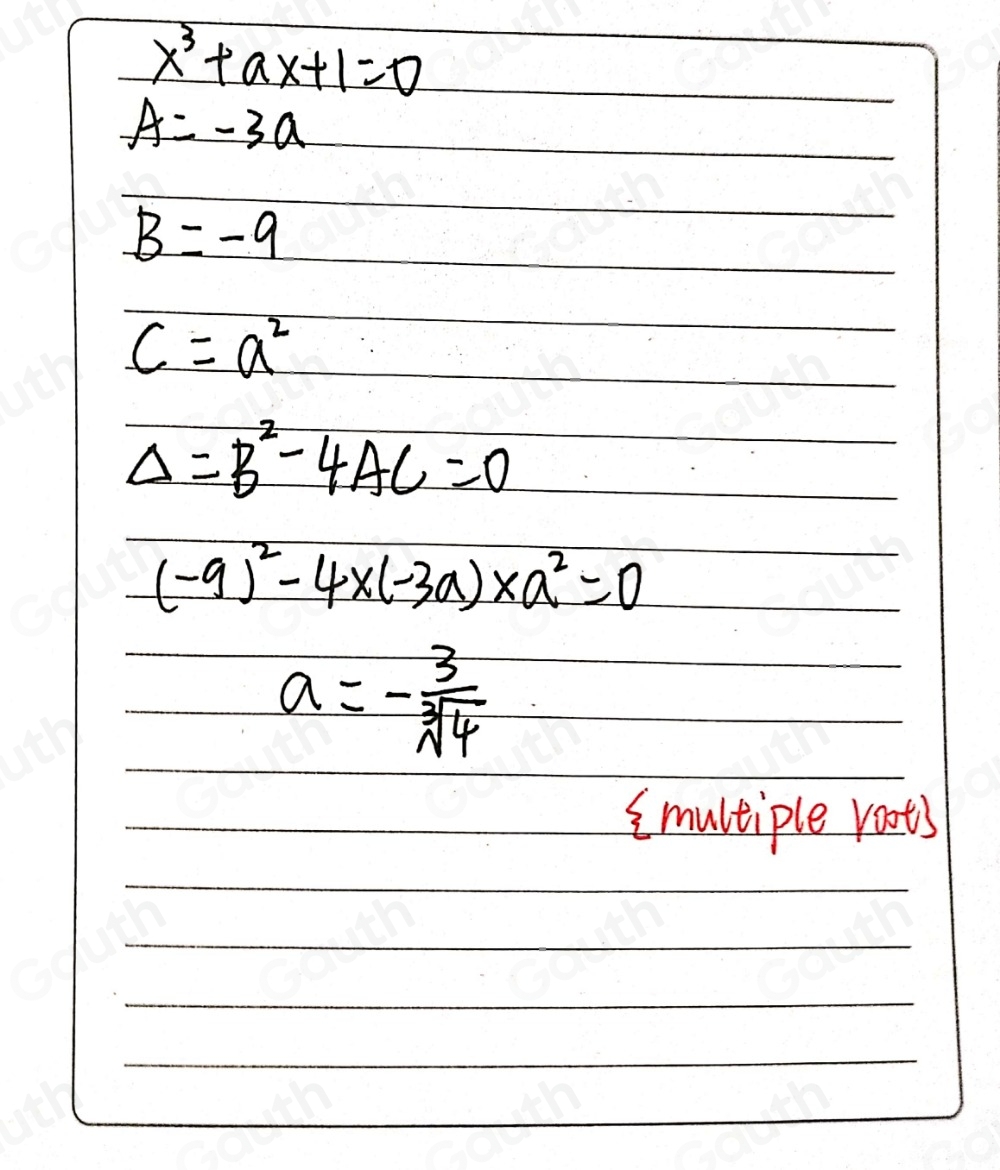 x³+ax+1=0
A=-3a
B=-9
C=a²
Δ=B²-4AC=0
(-9)²-4×(-3a)×a²=0
a=-3/∛4
{multiple root}